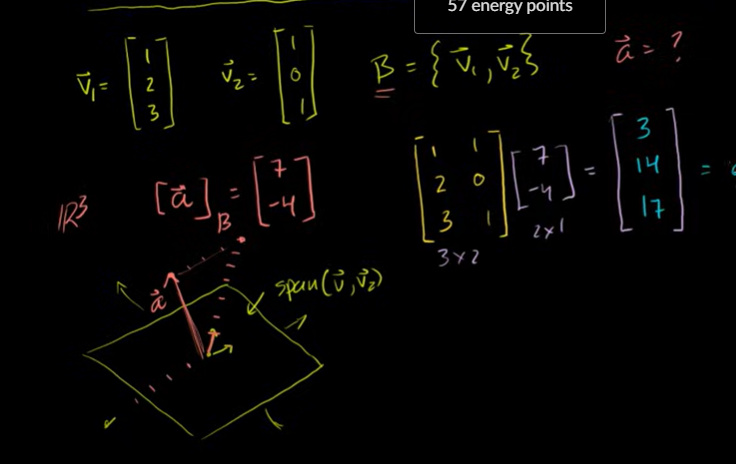 57 energy points
v⃗₁ = [1 2 3] v⃗₂ = [1 0 1] B = {v⃗₁, v⃗₂} a⃗ = ?
[1 1; 2 0; 3 1] [7 -4] = [3 14 17] =
3×2 2×1
ℝ³ [a⃗]_B = [7 -4]
a⃗ span(v⃗, v⃗₂)